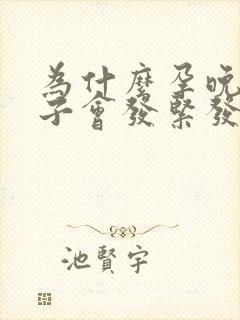 為什麼孕晚
子會發緊發
池賢宇